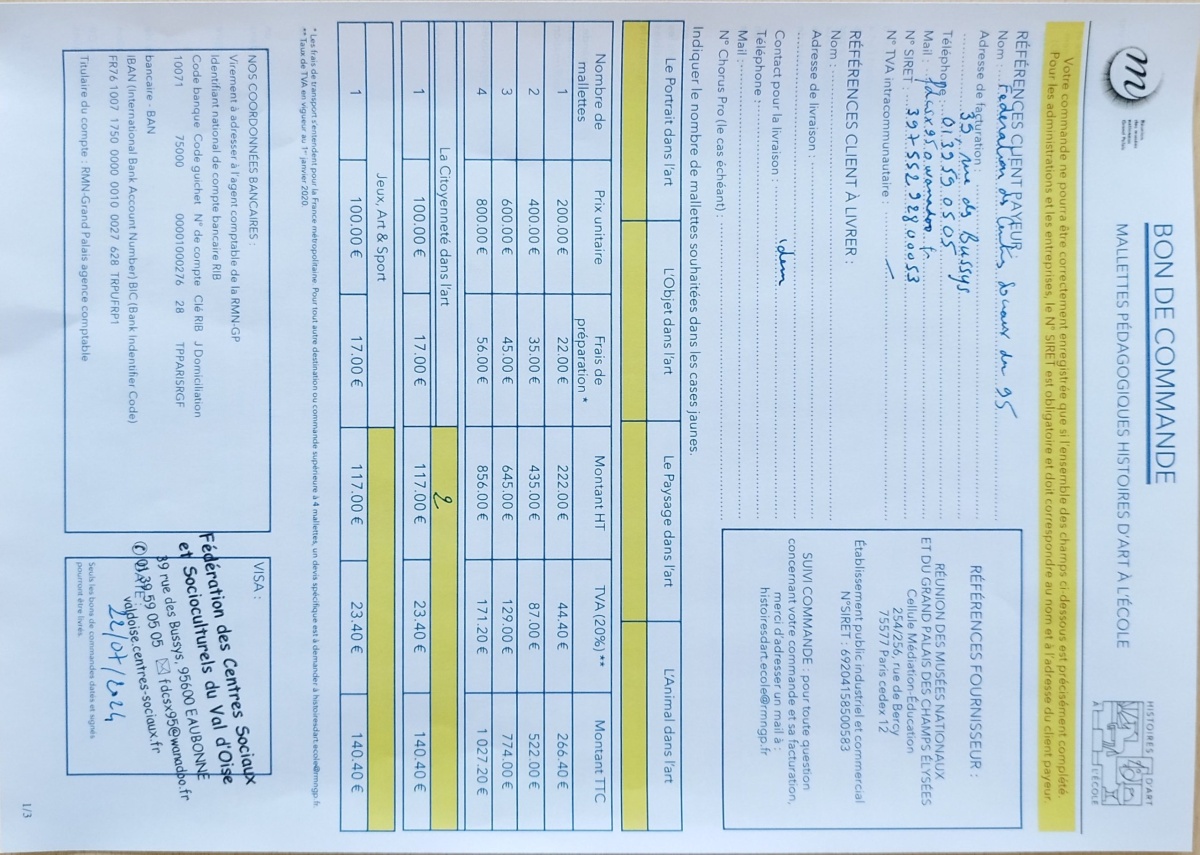 Réunion
des musées
nationaux
Grand Palais
BON DE COMMANDE
MALLETTES PÉDAGOGIQUES HISTOIRES D'ART À L'ÉCOLE
HISTOIRES D'ART
À L'ÉCOLE
Votre commande ne pourra être correctement enregistrée que si l'ensemble des champs ci-dessous est précisément complété.
Pour les administrations et les entreprises, le N° SIRET est obligatoire et doit correspondre au nom et à l'adresse du client payeur.
RÉFÉRENCES CLIENT PAYEUR
Nom : Fédération des Centres Sociaux du 95
Adresse de facturation :
39, rue des Bussys
Téléphone 01 39 59 05 05
Mail : fdcsx95@wanadoo.fr
N° SIRET : 397 552 928 00053
N° TVA intracommunautaire :
RÉFÉRENCES CLIENT À LIVRER :
Nom :
Adresse de livraison :
Contact pour la livraison : idem
Téléphone :
Mail :
N° Chorus Pro (le cas échéant) :
RÉFÉRENCES FOURNISSEUR :
RÉUNION DES MUSÉES NATIONAUX
ET DU GRAND PALAIS DES CHAMPS ÉLYSÉES
Cellule Médiation-Éducation
254/256, rue de Bercy
75577 Paris cedex 12
Établissement public industriel et commercial
N°SIRET : 69204158500583
SUIVI COMMANDE : pour toute question
concernant votre commande et sa facturation,
merci d'adresser un mail à :
histoiresdart.ecole@rmngp.fr
Indiquer le nombre de mallettes souhaitées dans les cases jaunes.
Le Portrait dans l'art L'Objet dans l'art Le Paysage dans l'art L'Animal dans l'art
Nombre de mallettes Prix unitaire Frais de préparation * Montant HT TVA (20%) ** Montant TTC
1 200.00 € 22.00 € 222.00 € 44.40 € 266.40 €
2 400.00 € 35.00 € 435.00 € 87.00 € 522.00 €
3 600.00 € 45.00 € 645.00 € 129.00 € 774.00 €
4 800.00 € 56.00 € 856.00 € 171.20 € 1 027.20 €
La Citoyenneté dans l'art 2
1 100.00 € 17.00 € 117.00 € 23.40 € 140.40 €
Jeux, Art & Sport
1 100.00 € 17.00 € 117.00 € 23.40 € 140.40 €
* Les frais de transport s'entendent pour la France métropolitaine. Pour tout autre destination ou commande supérieure à 4 mallettes, un devis spécifique est à demander à histoiresdart.ecole@rmngp.fr.
** Taux de TVA en vigueur au 1er janvier 2020.
NOS COORDONNÉES BANCAIRES :
Virement à adresser à l'agent comptable de la RMN-GP
Identifiant national de compte bancaire RIB
Code banque Code guichet N° de compte Clé RIB J Domiciliation
10071 75000 00001000276 28 TPPARISRGF
bancaire - BAN
IBAN (International Bank Account Number) BIC (Bank Indentifier Code)
FR76 1007 1750 0000 0010 0027 628 TRPUFRP1
Titulaire du compte : RMN-Grand Palais agence comptable
VISA :
Fédération des Centres Sociaux
et Socioculturels du Val d'Oise
39 rue des Bussys, 95600 EAUBONNE
✆ 01 39 59 05 05 ✉ fdcsx95@wanadoo.fr
valdoise.centres-sociaux.fr
DATE :
22/07/2024
Seuls les bons de commandes datés et signés
pourront être livrés.
1/3